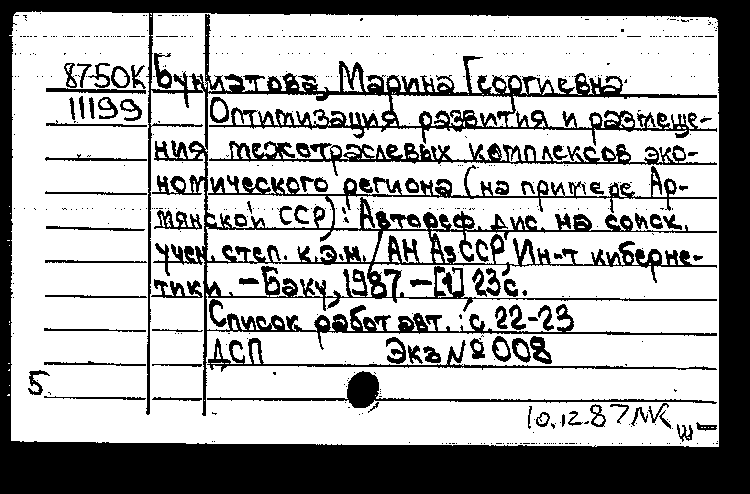 87-50К Буниатова, Марина Георгиевна
11199 Оптимизация развития и размеще-
ния межотраслевых комплексов эко-
номического региона (на примере Ар-
мянской ССР): Автореф. дис. на соиск.
учен. степ. к.э.н. / АН АзССР, Ин-т киберне-
тики. – Баку, 1987. – [1] 23 с.
Список работ авт.: с. 22-23
ДСП Экз № 008
5
10.12.87